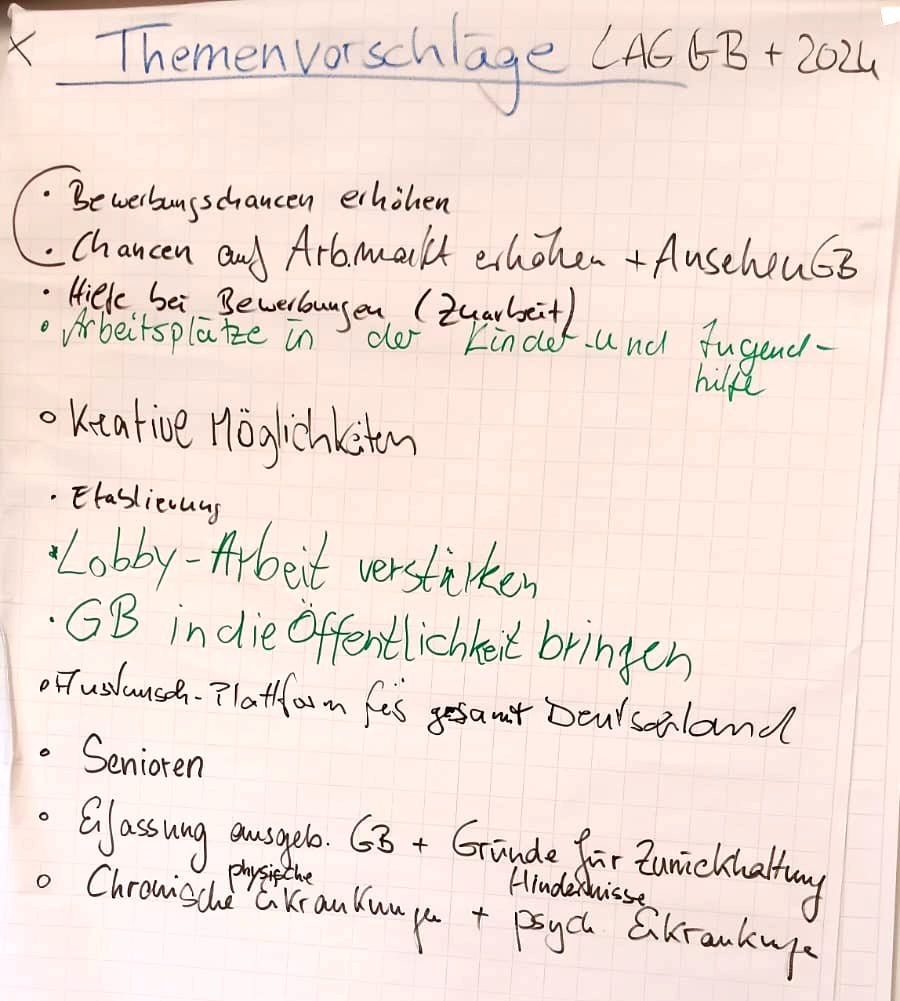 x Themenvorschläge LAG GB + 2024
· Bewerbungschancen erhöhen
· Chancen auf Arb.markt erhöhen + Ansehen GB
· Hilfe bei Bewerbungen (Zuarbeit)
· Arbeitsplätze in der Kinder- und Jugend-
hilfe
o Kreative Möglichkeiten
· Etablierung
* Lobby-Arbeit verstärken
· GB in die Öffentlichkeit bringen
· Austausch-Plattform für gesamt Deutschland
· Senioren
· Erfassung ausgeb. GB + Gründe für Zurückhaltung
physische Hindernisse
o Chronische Erkrankungen + psych. Erkrankunge